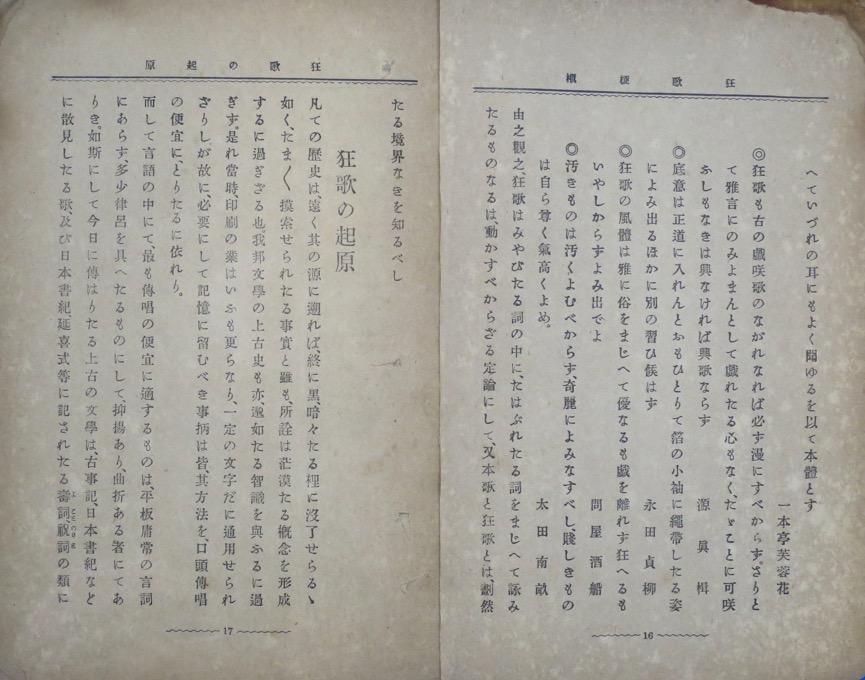 狂歌梗概
へていづれの耳にもよく聞ゆるを以て本體とす
一本亭芙蓉花
◎狂歌も古の戯咲歌のながれなれば必ず漫にすべからず。さりと
て雅言にのみよまんとして戯れたる心もなく、たゞことに可咲
ふしもなきは興なければ興歌ならず
源眞楫
◎底意は正道に入れんとおもひとりて箔の小袖に繩帶したる姿
によみ出るほかに別の習ひ候はず
永田貞柳
◎狂歌の風體は雅に俗をまじへて優なるも戯を離れず狂へるも
いやしからずよみ出でよ
問屋酒船
◎汚きものは汚くよむべからず、奇麗によみなすべし、賤しきもの
は自ら尊く氣高くよめ。
太田南畝
由之觀之、狂歌はみやびたる詞の中に、たはぶれたる詞をまじへて詠み
たるものなるは、動かすべからざる定論にして、又本歌と狂歌とは、劃然
16
狂歌の起原
たる境界なきを知るべし
狂歌の起原
凡ての歴史は、遠く其の源に遡れば、終に黒暗々たる裡に沒了せらるゝ
如く、たま〱摸索せられたる事實と雖も、所詮は茫漠たる概念を形成
するに過ぎざる也。我邦文學の上古史も亦邈如たる智識を與ふるに過
ぎず。是れ當時、印刷の業はいふも更らなり、一定の文字だに通用せられ
ざりしが故に、必要にして記憶に留むべき事柄は皆、其方法を、口頭傳唱
の便宜に、とりたるに依れり。
而して言語の中にて、最も傳唱の便宜に適するものは、平板庸常の言詞
にあらず、多少律呂を具へたるものにして、抑揚あり、曲折ある者にてあ
りき。如斯にして今日に傳はりたる上古の文學は、古事記、日本書紀など
に散見したる歌、及び日本書紀、延喜式等に記されたる壽詞、祝詞の類に
17